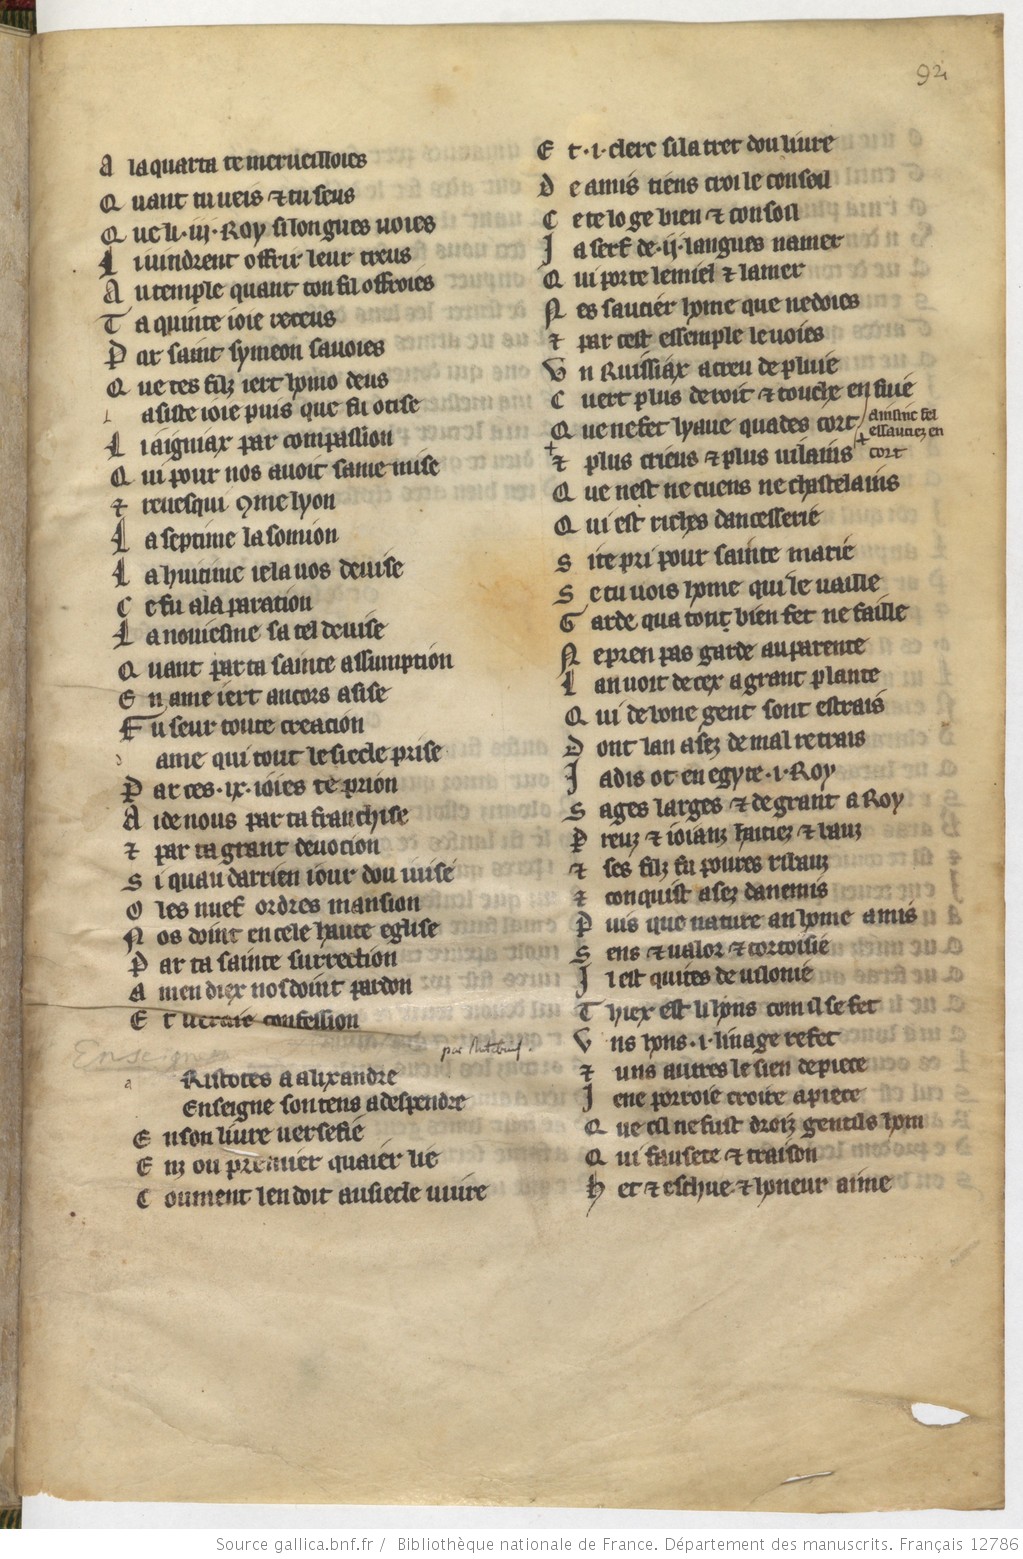 92
A la quarta te merueilloies
Q uant tu ueis & tu seus
Q ue li .iij. Roy si longues uoies
L i uindrent offrir leur treus
A u temple quant ton fil offroies
T a quinte ioie receus
P ar saint symeon sauoies
Q ue tes filz iert homo deus
l a siste ioie puis que fu ocise
L i aigniax par compassion
Q ui pour nos auoit same mise
& reuesqui 9me lyon
L a septime lasomion
L a huitime ie la uos deuise
C e fu ala paration
L a nouiesme sa tel deuise
Q uant par ta sainte assumption
E n ame iert ancors asise
F u seur toute creacion
d ame qui tout le siecle prise
P ar ces .ix. ioies te prion
A ide nous par ta franchise
& par ta grant deuocion
S i quau darrien iour dou iuise
O les nuef ordres mansion
N os doint en cele haute eglise
P ar ta sainte surrection
A men diex nos doint pardon
E t ueraie confession
par Rutebeuf.
Enseigne
a Ristotes a alixandre
Enseigne son tens adespendre
E n son liure uersefie
E nz ou premier quaier lie
C oument len doit au siecle uiure
E t .i. clerc si la tret dou liure
D e amis tiens croi le conseil
C e te lo ge bien & conseil
J a serf de .ij. langues namer
Q ui porte le miel & lamer
N es saucier home que ne doies
& par cest essemple le uoies
V n Ruissiax acreu de pluie
C uert plus de roit & touche en fuie
Q ue ne fet lyaue quades cort
ainsinc fel
essauciez en
cort
& plus crieus & plus uilains
Q ue nest ne cuens ne chastelains
Q ui est riches dancesserie
S i te pri pour sainte marie
S e tu uois home qui le uaille
G arde qua tout bien fet ne faille
N e pren pas garde au parente
L an uoit de cex a grant plante
Q ui de bone gent sont estrais
D ont lan asez de mal retrais
J adis ot en egyte .i. Roy
S ages larges & de grant aRoy
P reuz & ioianz haitiez & bauz
& ses filz fu poures ribauz
& conquist asez danemis
P uis que nature an home a mis
S ens & ualor & cortoisie
J l est quites de uilonie
T hiex est li hons com il se fet
V ns hons .i. linage refet
& uns autres le sien depiece
J ene porroie croire apiece
Q ue cil ne fust droiz gentils hom
Q ui fausete & traison
H et & eschue & honeur aime
Source gallica.bnf.fr / Bibliothèque nationale de France. Département des manuscrits. Français 12786